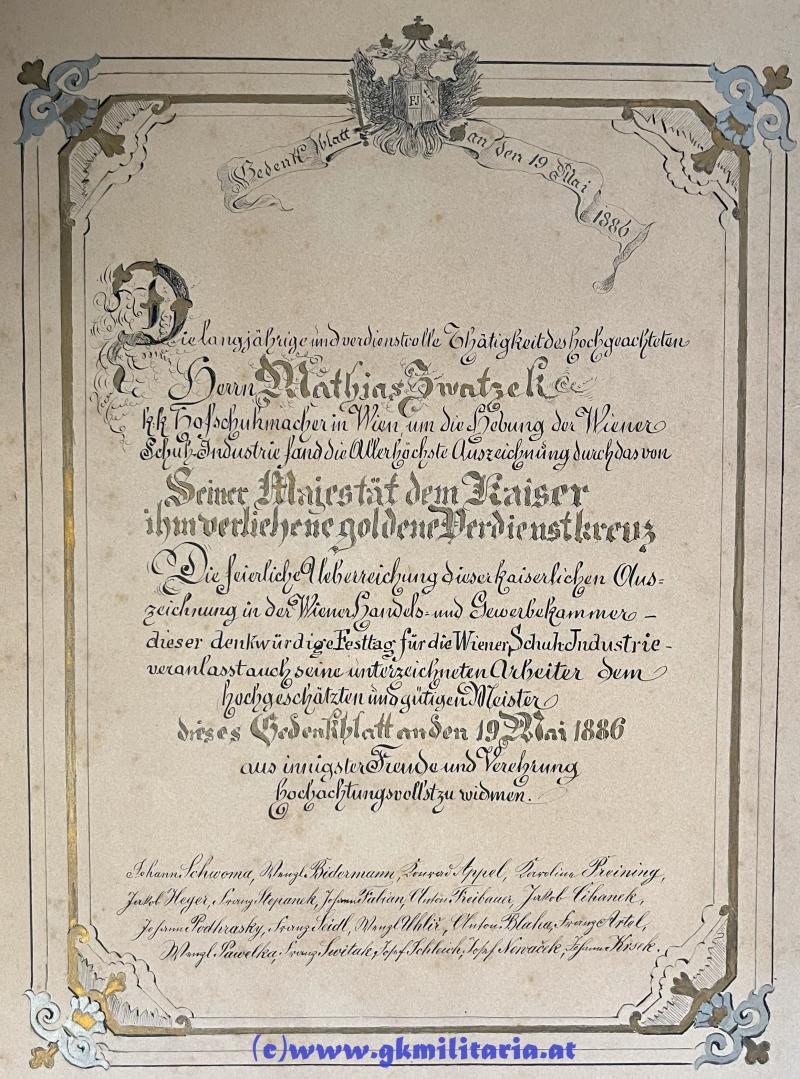 FJ
Gedenk blatt an den 19 Mai 1886
Die langjährige und verdienstvolle Thätigkeit des hochgeachteten
Herrn Mathias Zwatzek
kk Hofschuhmacher in Wien, um die Hebung der Wiener
Schuh-Industrie fand die Allerhöchste Auszeichnung durch das von
Seiner Majestät dem Kaiser
ihm verliehene goldene Verdienstkreuz
Die feierliche Ueberreichung dieser kaiserlichen Aus=
zeichnung in der Wiener Handels- und Gewerbekammer –
dieser denkwürdige Festtag für die Wiener Schuh-Industrie -
veranlasst auch seine unterzeichneten Arbeiter dem
hochgeschätzten und gütigen Meister
dieses Gedenkblatt an den 19 Mai 1886
aus innigster Freude und Verehrung
hochachtungsvollst zu widmen.
Johann Schwoma, Wenzl Bidermann, Konrad Appel, Karoline Preining,
Jakob Heger, Franz Stepanek, Johann Fabian, Anton Freibauer, Jakob Cihanek,
Johann Podhrasky, Franz Seidl, Wenzl Uhliř, Anton Blaha, Franz Artol,
Wenzl Pawelka, Franz Switak, Josef Schleich, Josef Nowaček, Johann Krsek.
(c)www.gkmilitaria.at